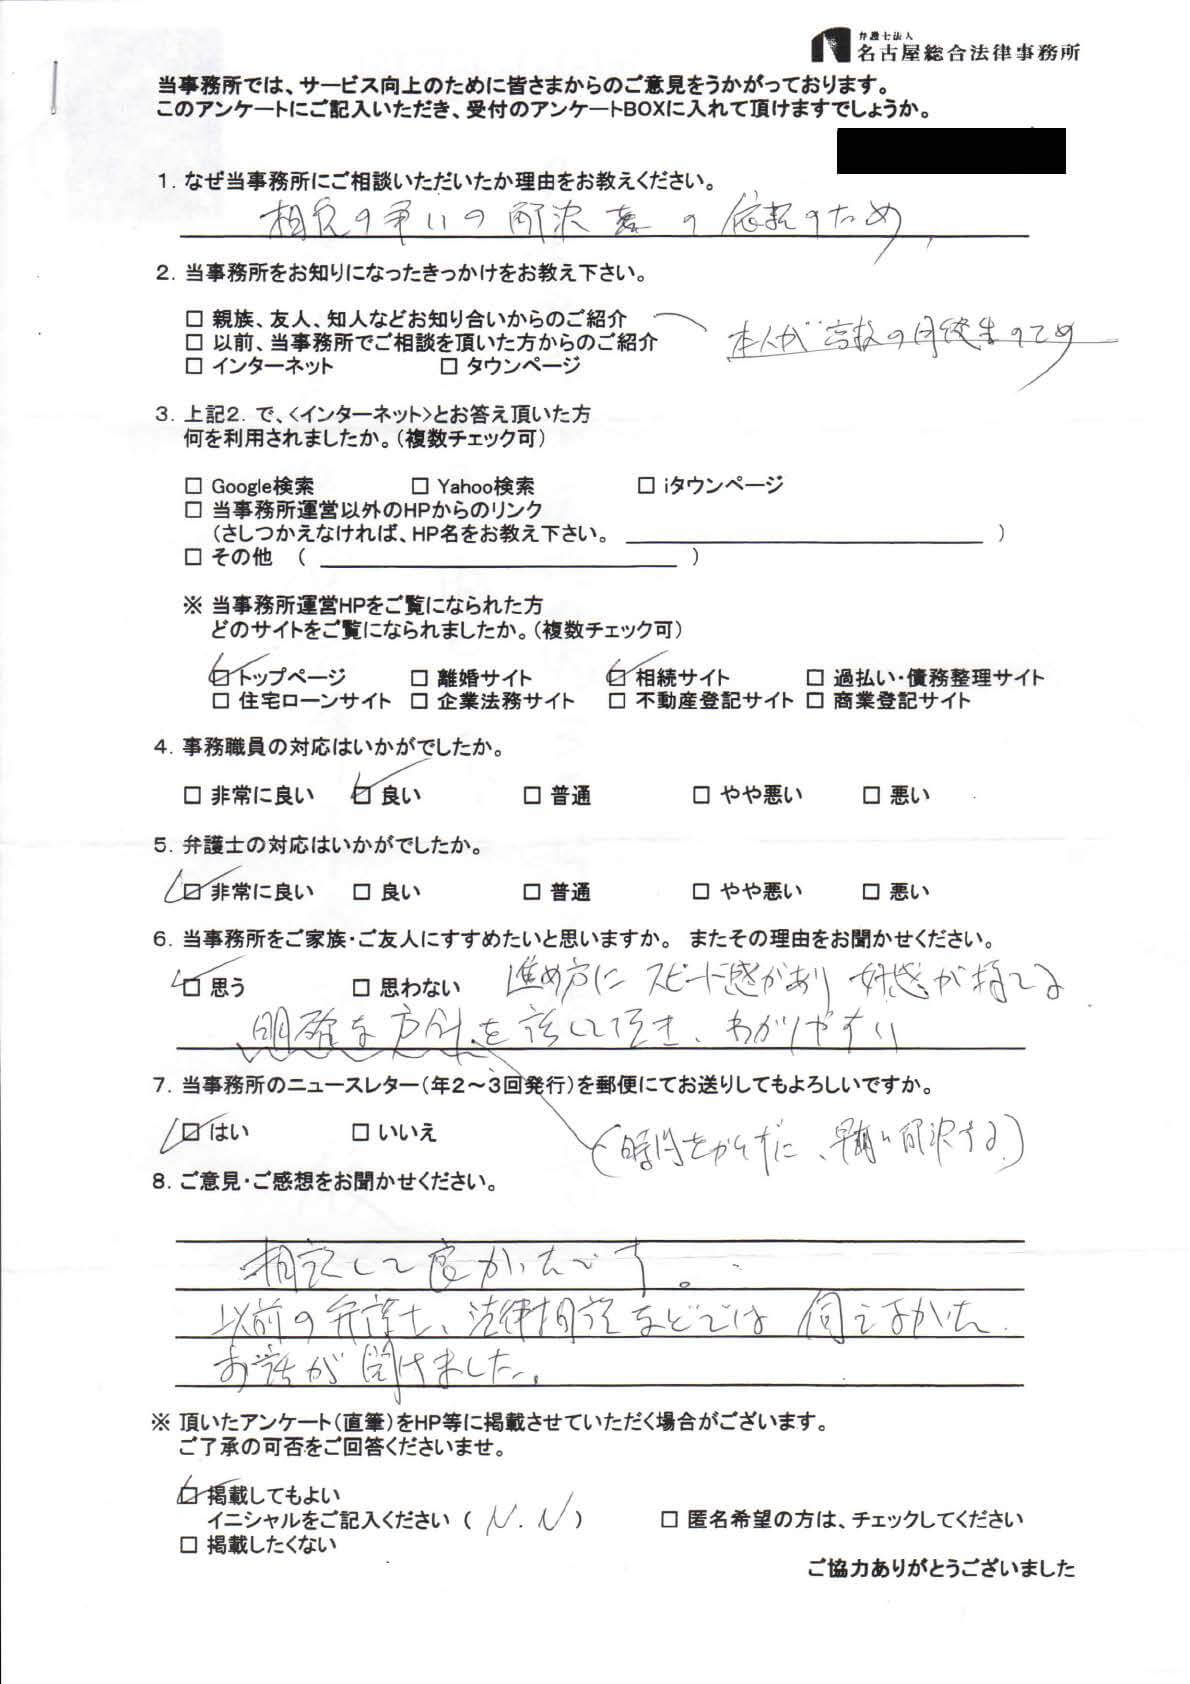 弁護士法人
名古屋総合法律事務所
当事務所では、サービス向上のために皆さまからのご意見をうかがっております。
このアンケートにご記入いただき、受付のアンケートBOXに入れて頂けますでしょうか。
1. なぜ当事務所にご相談いただいたか理由をお教えください。
相続の争いの解決 の依頼のため
2. 当事務所をお知りになったきっかけをお教え下さい。
□ 親族、友人、知人などお知り合いからのご紹介
□ 以前、当事務所でご相談を頂いた方からのご紹介
本人が高校の同級生のため
□ インターネット □ タウンページ
3. 上記2. で、<インターネット>とお答え頂いた方
何を利用されましたか。(複数チェック可)
□ Google検索 □ Yahoo検索 □ iタウンページ
□ 当事務所運営以外のHPからのリンク
(さしつかえなければ、HP名をお教え下さい。 )
□ その他 ( )
※ 当事務所運営HPをご覧になられた方
どのサイトをご覧になられましたか。(複数チェック可)
☑ トップページ □ 離婚サイト ☑ 相続サイト □ 過払い・債務整理サイト
□ 住宅ローンサイト □ 企業法務サイト □ 不動産登記サイト □ 商業登記サイト
4. 事務職員の対応はいかがでしたか。
□ 非常に良い ☑ 良い □ 普通 □ やや悪い □ 悪い
5. 弁護士の対応はいかがでしたか。
☑ 非常に良い □ 良い □ 普通 □ やや悪い □ 悪い
6. 当事務所をご家族・ご友人にすすめたいと思いますか。 またその理由をお聞かせください。
☑ 思う □ 思わない 進め方に スピード感があり 好感が持てる
明確な方針を話して頂き、わかりやすい
7. 当事務所のニュースレター(年2～3回発行)を郵便にてお送りしてもよろしいですか。
☑ はい □ いいえ
(時間をかけずに、早期に解決する)
8. ご意見・ご感想をお聞かせください。
相談して良かったです。
以前の弁護士、法律相談などでは 伺えなかった
お話が聞けました。
※ 頂いたアンケート(直筆)をHP等に掲載させていただく場合がございます。
ご了承の可否をご回答くださいませ。
☑ 掲載してもよい
イニシャルをご記入ください ( N.N ) □ 匿名希望の方は、チェックしてください
□ 掲載したくない
ご協力ありがとうございました